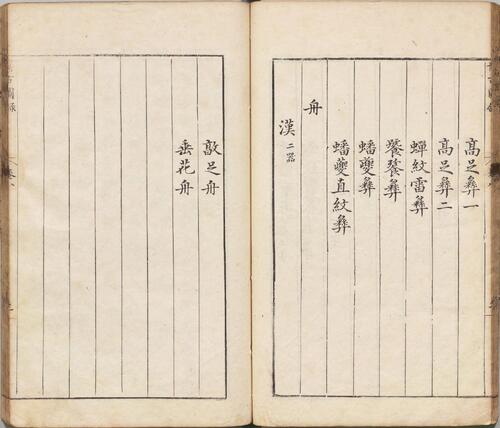 高足彝一
高足彝二
蟬紋雷彝
饕餮彝
蟠夔彝
蟠夔直紋彝
舟
漢二器
敦足舟
垂花舟